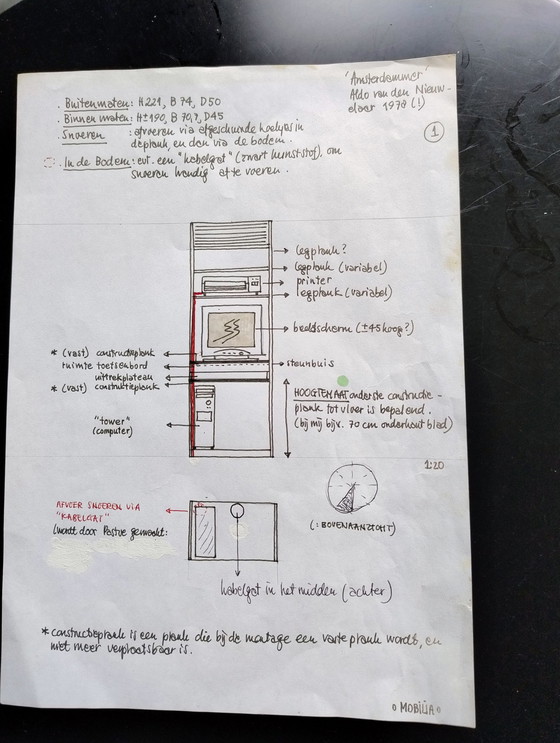 'Amsterdammer'
Aldo van den Nieuw-
elaar 1978 (!)
1
. Buitenmaten: H221, B 74, D50
. Binnenmaten: H±190, B 70,?, D45
. Snoeren : afvoeren via afgeschuinde hoekjes in
de plank, en dan via de bodem.
. In de Bodem: evt. een "kabelgat" (zwart kunststof), om
snoeren handig af te voeren.
legplank?
legplank (variabel)
printer
legplank (variabel)
beeldscherm (±45 hoog?)
* (vast) constructieplank
ruimte toetsenbord
uittrekplateau
* (vast) constructieplank
steunbuis
HOOGTEMAAT onderste constructie-
plank tot vloer is bepalend.
(bij mij bijv. 70 cm onderkant blad)
"tower"
(computer)
1:20
AFVOER SNOEREN VIA
"KABELGAT"
(wordt door Pastoe gemaakt:
(: BOVENAANZICHT)
kabelgat in het midden (achter)
* constructieplank is een plank die bij de montage een vaste plank wordt, en
niet meer verplaatsbaar is.
o MOBILIA o